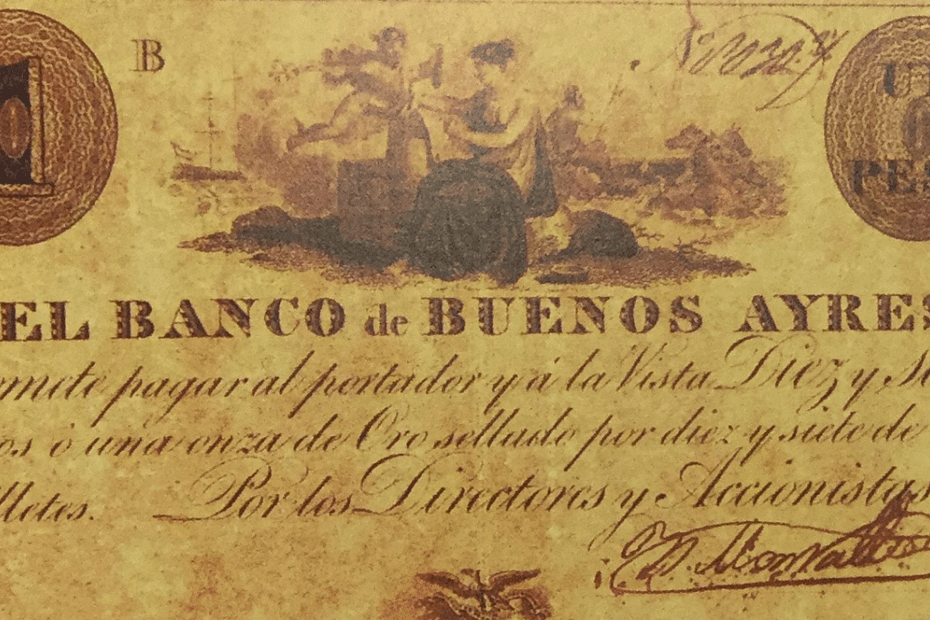 1
B
UN
PES
EL BANCO de BUENOS AYRES
mete pagar al portador y á la Vista Diez y Si
os ó una onza de Oro sellado por diez y siete de
lletes. Por los Directores y Accionistas